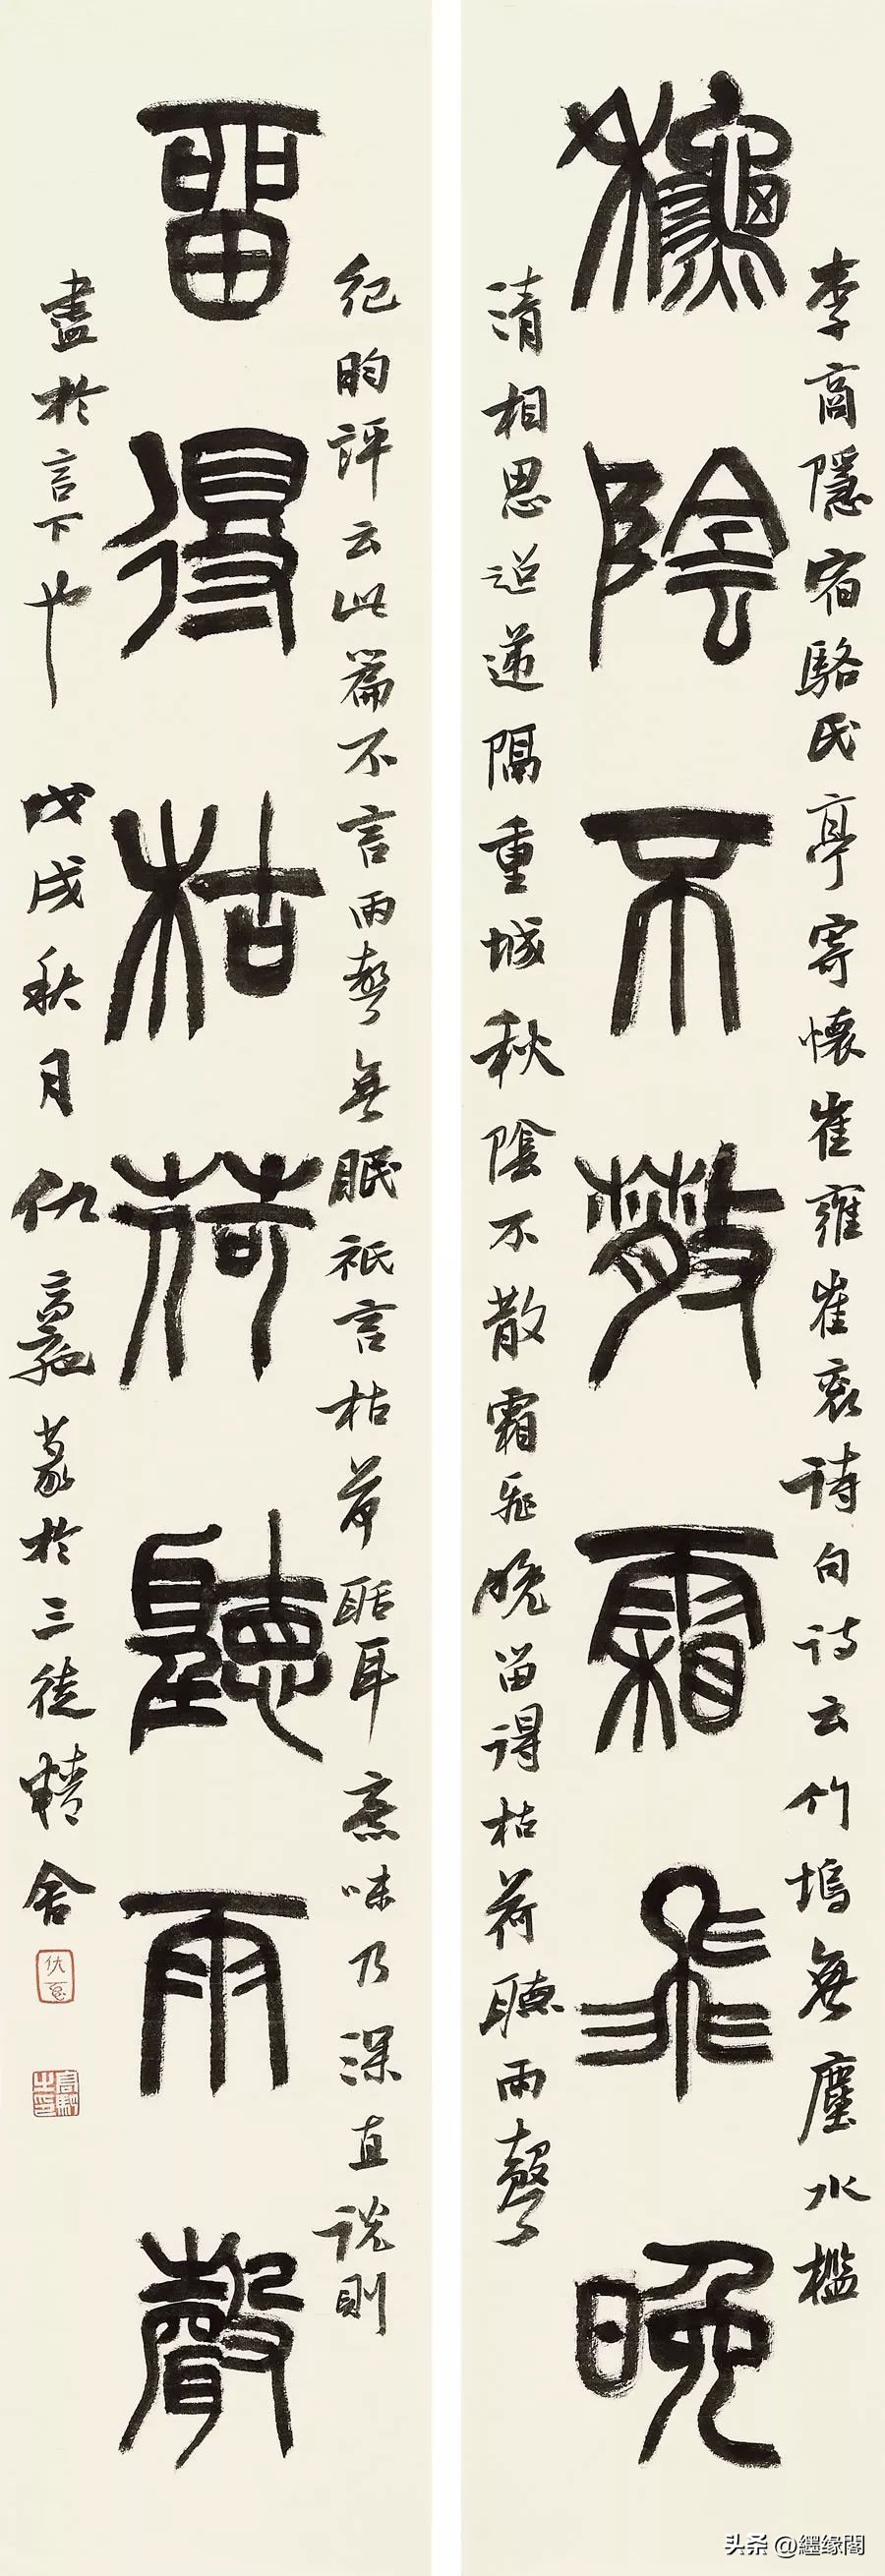 李商隱宿駱氏亭寄懷崔雍崔袞詩句詩云竹塢無塵水檻
龝陰不散霜飛晚
清相思迢遞隔重城秋陰不散霜飛晚留得枯荷聽雨聲
紀昀評云此篇不言雨聲無眠祇言枯荷聒耳意味乃深直說則
留得枯荷聽雨聲
盡於言下也 戊戌秋月 仇高馳篆於三徒精舍
高馳之印
头条 @繼缘閣